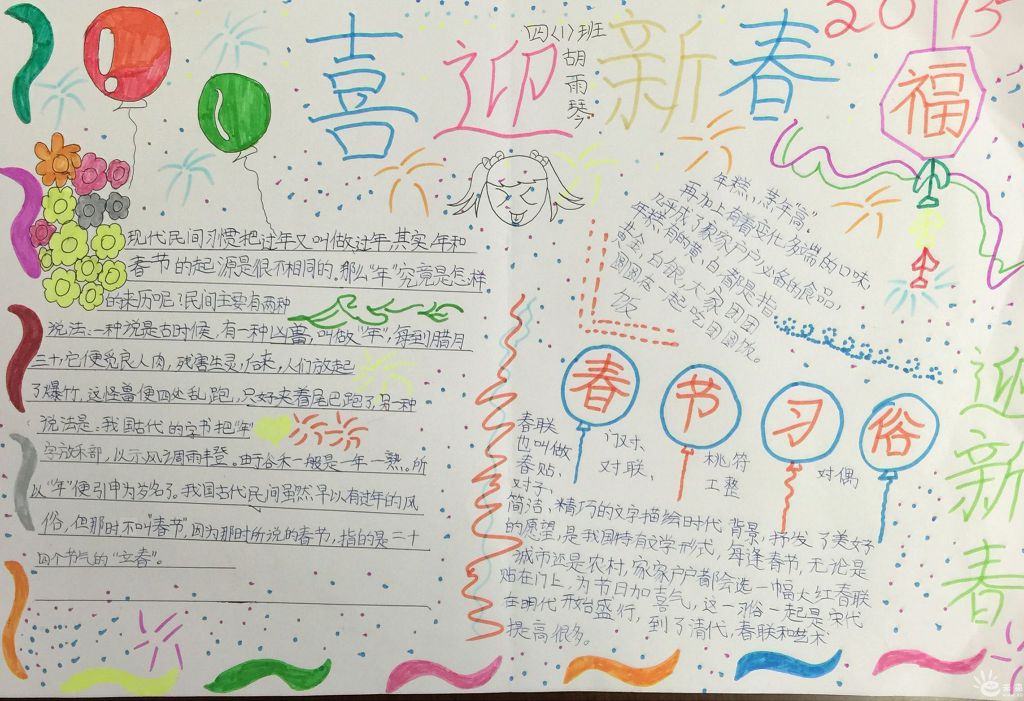 喜迎新春
四(1)班
胡雨琴
2015
福
现代民间习惯把过年又叫做过年,其实,年和
春节的起源是很不相同的。那么"年"究竟是怎样
的来历呢?民间主要有两种
说法:一种说是古时候,有一种凶兽,叫做"年",每到腊月
三十,它便觅良人肉,残害生灵,后来,人们放起
了爆竹,这怪兽便四处乱跑,只好夹着尾巴跑了,另一种
说法是:我国古代的字书把"年"
字放禾部,以示风调雨丰登。由于谷禾一般是一年一熟。所
以"年"便引申为岁名了。我国古代民间虽然早以有过年的风
俗,但那时不叫"春节",因为那时所说的春节,指的是二十
四个节气的"立春"。
年糕,,烹年"高"。
再加上有着变化多端的口味
几乎成了家家户户必备的食品,
年糕有的黄、白都是指
黄金、白银,大家团团
圆圆在一起吃团圆饭。
饭
春节习俗
春联
也叫做
春贴、
对子、
门对、
对联、
桃符
工整
对偶
简洁、精巧的文字描绘时代 背景,抒发了美好
的愿望,是我国特有文学形式,每逢春节,无论是
城市还是农村,家家户户都会选一幅火红春联
贴在门上,为节日加喜气,这一习俗一起是宋代
在明代开始盛行,到了清代,春联和艺术
提高很多。
迎新春